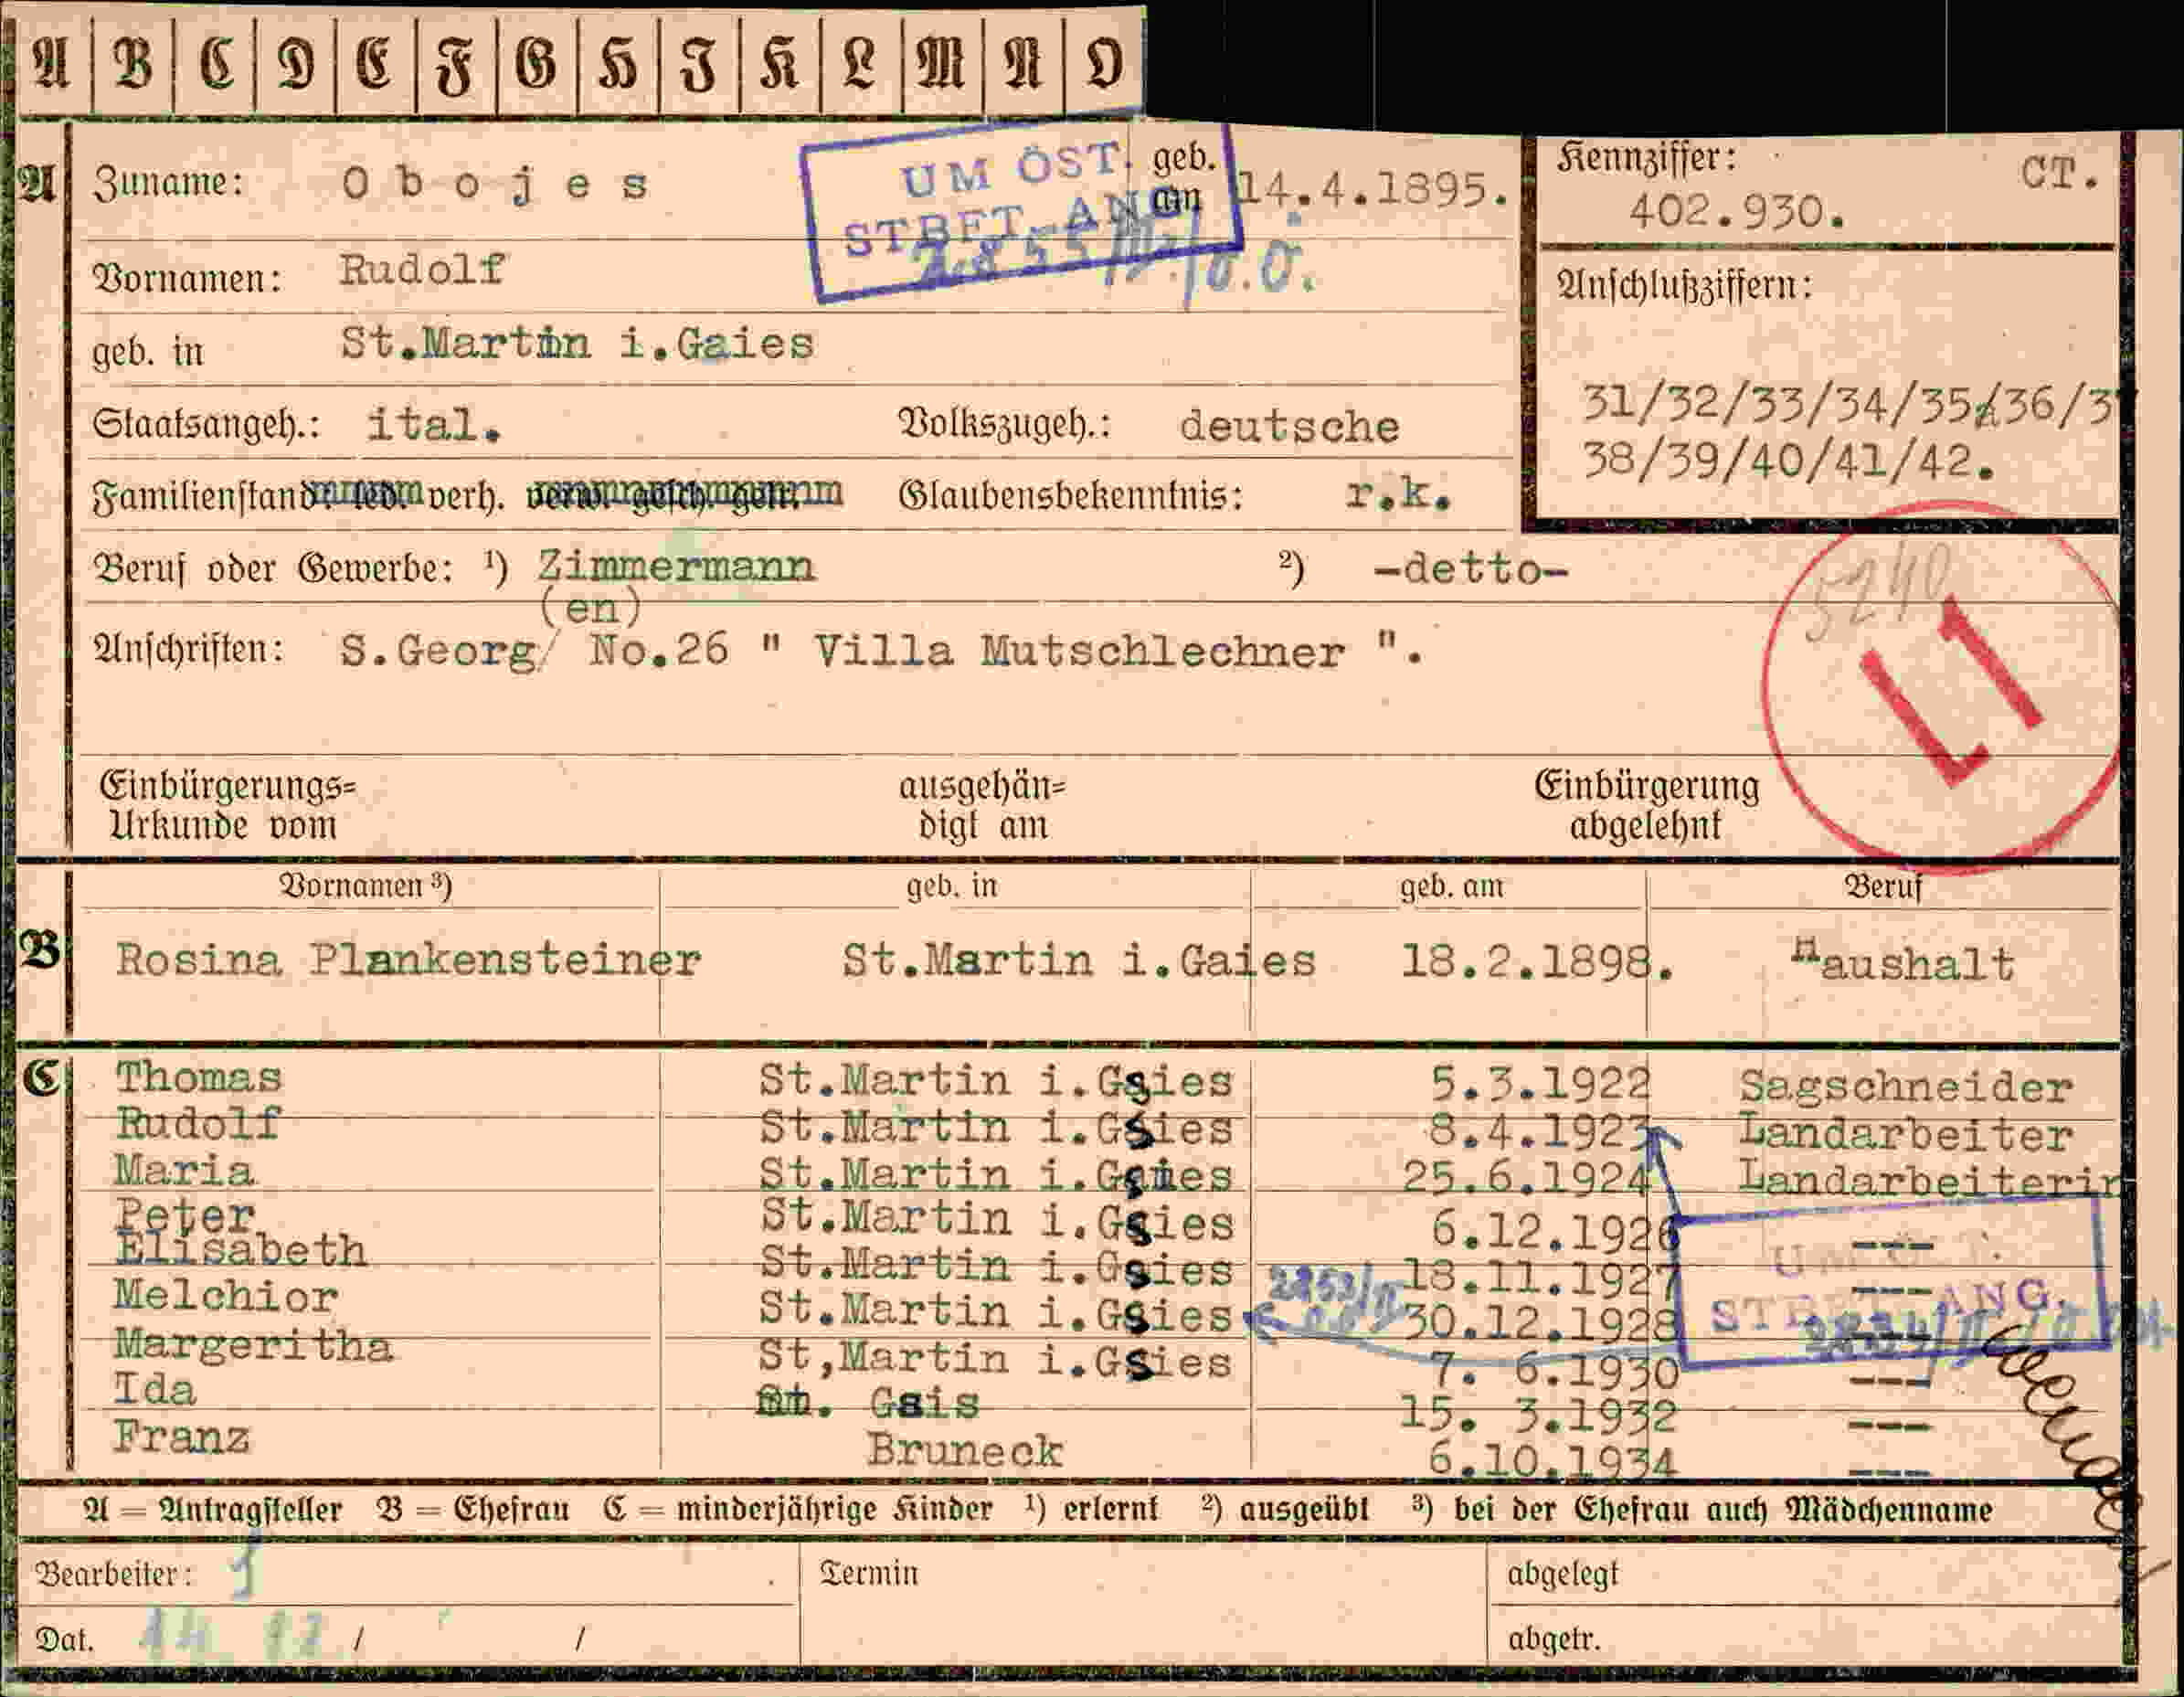 A B C D E F G H I K L M N O
A Zuname: O b o j e s geb. am 14.4.1895.
UM ÖST.
STBFT. ANG.
Kennziffer: CT.
402.930.
Vornamen: Rudolf
Anschlußziffern:
geb. in St.Martin i.Gaies
31/32/33/34/35/36/37
38/39/40/41/42.
Staatsangeh.: ital. Volkszugeh.: deutsche
Familienstand: verh. Glaubensbekenntnis: r.k.
Beruf oder Gewerbe: ¹) Zimmermann ²) -detto-
(en)
5240
Anschriften: S.Georg/ No.26 " Villa Mutschlechner ".
L1
Einbürgerungs= ausgehän= Einbürgerung
Urkunde vom digt am abgelehnt
Vornamen ³) geb. in geb. am Beruf
B Rosina Plankensteiner St.Martin i.Gaies 18.2.1898. Haushalt
C Thomas St.Martin i.Gsies 5.3.1922 Sagschneider
Rudolf St.Martin i.Gsies 8.4.1923 Landarbeiter
Maria St.Martin i.Gsies 25.6.1924 Landarbeiterin
Peter St.Martin i.Gsies 6.12.1926 ---
Elisabeth St.Martin i.Gsies 18.11.1927 ---
Melchior St.Martin i.Gsies 30.12.1928 ---
Margeritha St,Martin i.Gsies 7. 6.1930 ---
Ida Gais 15. 3.1932 ---
Franz Bruneck 6.10.1934 ---
A = Antragsteller B = Ehefrau C = minderjährige Kinder ¹) erlernt ²) ausgeübt ³) bei der Ehefrau auch Mädchenname
Bearbeiter: Termin abgelegt
Dat. 14 12 / / abgetr.